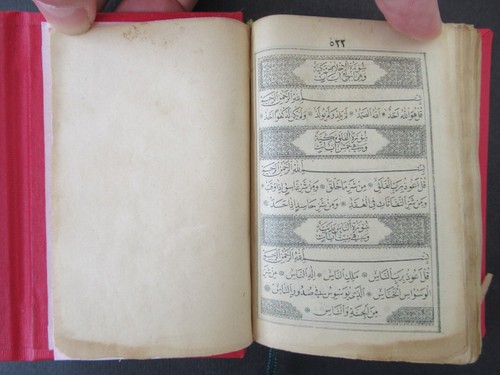 ٥٢٢
سورة الإخلاص مكية
وهي أربع آيات
بسم الله الرحمن الرحيم
قل هو الله احد * الله الصمد * لم يلد ولم يولد * ولم يكن له كفوا احد *
سورة الفلق مكية
وهي خمس آيات
بسم الله الرحمن الرحيم
قل اعوذ برب الفلق * من شر ما خلق * ومن شر غاسق اذا وقب *
ومن شر النفاثات في العقد * ومن شر حاسد اذا حسد *
سورة الناس مدنية
وهي ست آيات
بسم الله الرحمن الرحيم
قل اعوذ برب الناس * ملك الناس * اله الناس * من شر
الوسواس الخناس * الذى يوسوس فى صدور الناس *
من الجنة والناس *